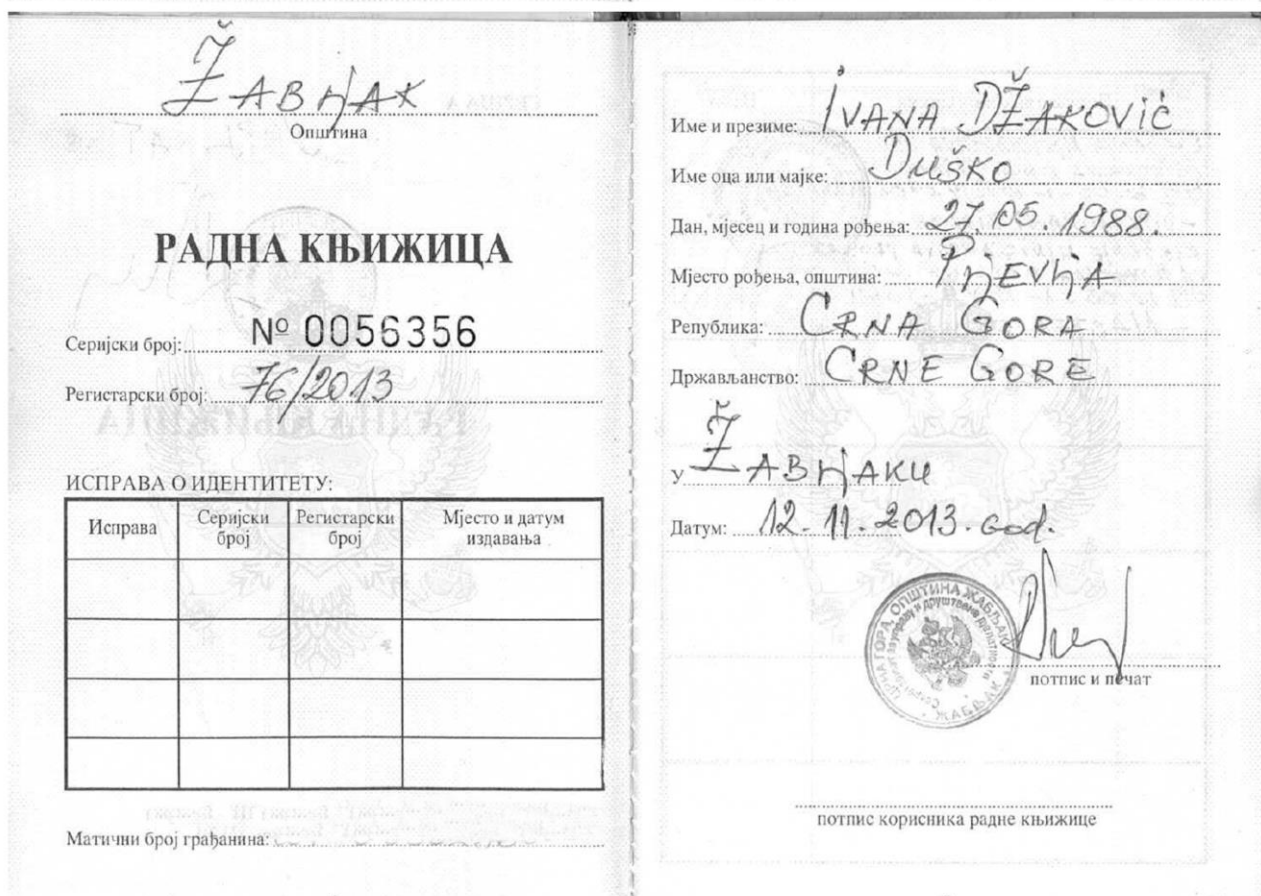 ŽABLJAK
Општина
РАДНА КЊИЖИЦА
Серијски број: № 0056356
Регистарски број: 76/2013
ИСПРАВА О ИДЕНТИТЕТУ:
Исправа
Серијски број
Регистарски број
Мјесто и датум издавања
Матични број грађанина:
Име и презиме: IVANA DŽAKOVIĆ
Име оца или мајке: DUŠKO
Дан, мјесец и година рођења: 27.05.1988.
Мјесто рођења, општина: PLJEVLJA
Република: CRNA GORA
Држављанство: CRNE GORE
У ŽABLJAKU
Датум: 12.11.2013. god.
ЦРНА ГОРА, ОПШТИНА ЖАБЉАК
ЖАБЉАК
потпис и печат
потпис корисника радне књижице